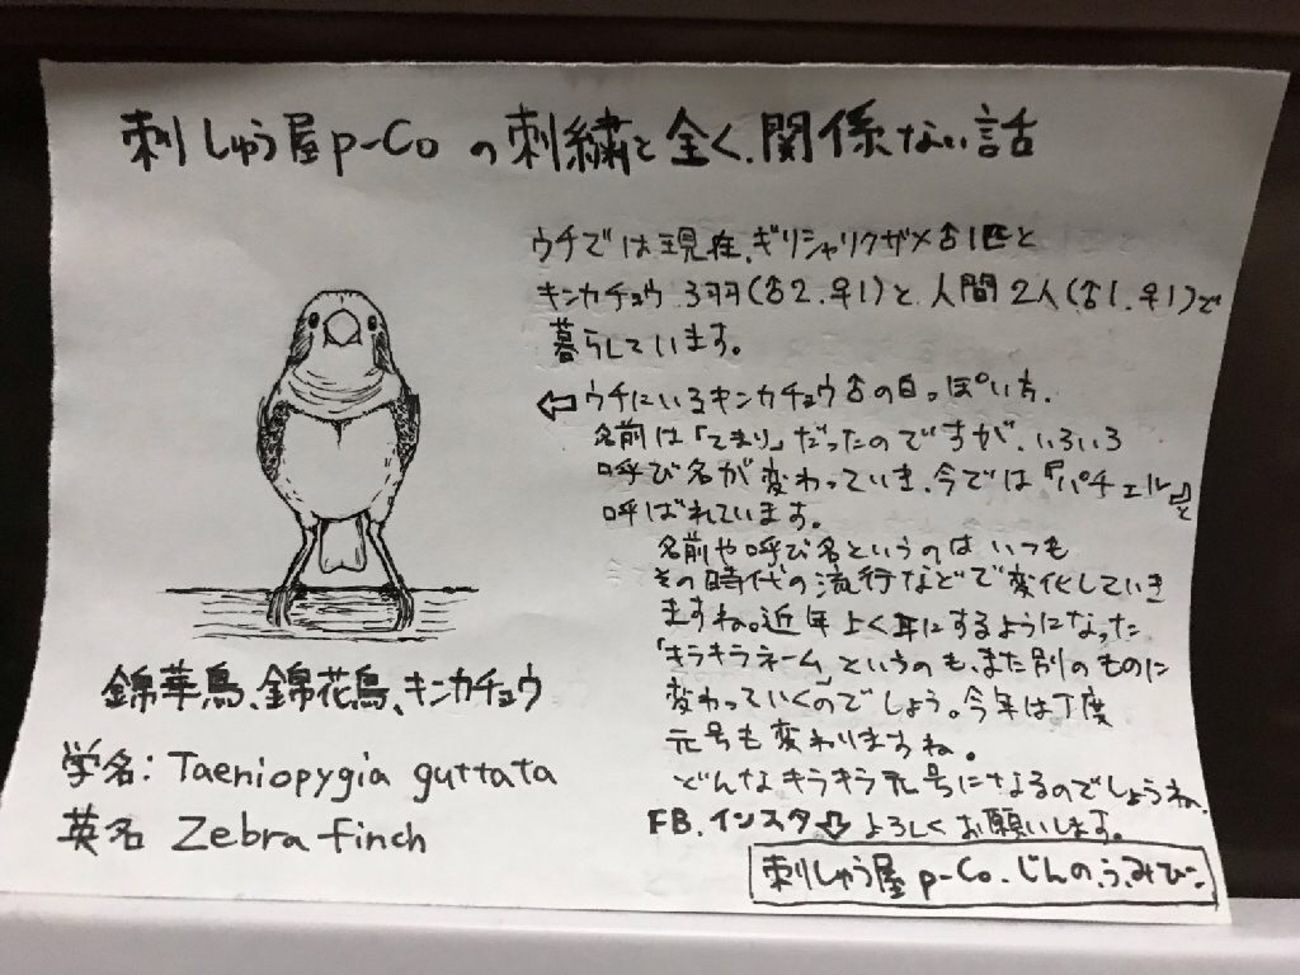 刺しゅう屋p-Coの刺繍と全く、関係ない話
ウチでは現在、ギリシャリクガメ♂1匹と
キンカチョウ 3羽(♂2.♀1)と人間2人(♂1.♀1)で
暮らしています。
⇦ウチにいるキンカチョウ♂の白っぽい方.
名前は「てまり」だったのですが、いろいろ
呼び名が変わっていき、今では『パチェル』と
呼ばれています。
名前や呼び名というのはいつも
その時代の流行などで変化していき
ますね。近年よく耳にするようになった
「キラキラネーム」というのも、また別のものに
変わっていくのでしょう。今年は丁度
元号も変わりますね。
どんなキラキラ元号になるのでしょうね、
FB.インスタ⇩よろしくお願いします。
刺しゅう屋 p-Co.じんのふみひこ
錦華鳥、錦花鳥、キンカチョウ
学名: Taeniopygia guttata
英名 Zebra finch